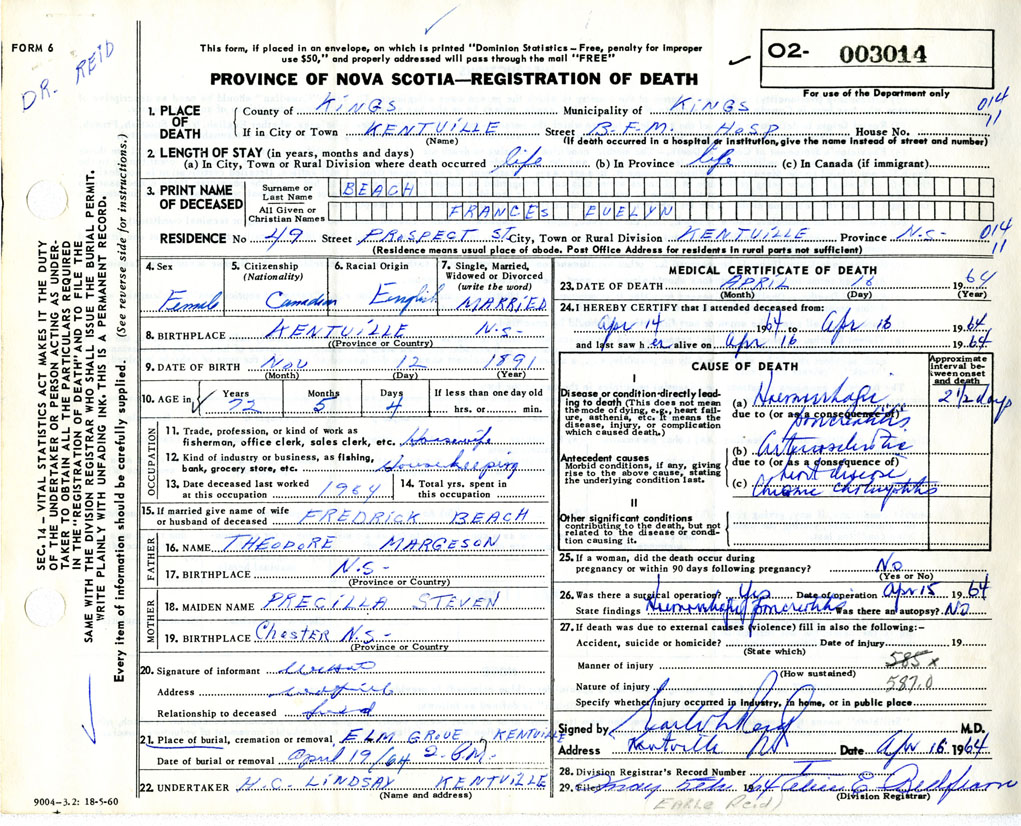 FORM 6
DR. REID
This form, if placed in an envelope, on which is printed "Dominion Statistics – Free, penalty for improper
use $50," and properly addressed will pass through the mail "FREE"
PROVINCE OF NOVA SCOTIA—REGISTRATION OF DEATH
O2- 003014
For use of the Department only
014
11
1. PLACE OF DEATH
County of KINGS Municipality of KINGS
If in City or Town KENTVILLE Street B.F.M. HOSP House No.
(Name) (If death occurred in a hospital or institution, give the name instead of street and number)
2. LENGTH OF STAY (in years, months and days)
(a) In City, Town or Rural Division where death occurred life (b) In Province life (c) In Canada (if immigrant)
3. PRINT NAME OF DECEASED
Surname or Last Name BEACH
All Given or Christian Names FRANCES EVELYN
RESIDENCE No 49 Street PROSPECT ST City, Town or Rural Division KENTVILLE Province N.S-
014
11
(Residence means usual place of abode. Post Office Address for residents in rural parts not sufficient)
4. Sex Female
5. Citizenship (Nationality) Canadian
6. Racial Origin English
7. Single, Married, Widowed or Divorced (write the word) MARRIED
8. BIRTHPLACE KENTVILLE N.S-
(Province or Country)
9. DATE OF BIRTH NOV 12 1891
(Month) (Day) (Year)
10. AGE in Years 72 Months 5 Days 4 If less than one day old hrs. or min.
OCCUPATION
11. Trade, profession, or kind of work as
fisherman, office clerk, sales clerk, etc. Housewife
12. Kind of industry or business, as fishing,
bank, grocery store, etc. Housekeeping
13. Date deceased last worked at this occupation 1964
14. Total yrs. spent in this occupation
15. If married give name of wife or husband of deceased FREDRICK BEACH
FATHER
16. NAME THEODORE MARGESON
17. BIRTHPLACE N.S-
(Province or Country)
MOTHER
18. MAIDEN NAME PRECILLA STEVEN
19. BIRTHPLACE Chester N.S-
(Province or Country)
20. Signature of informant
Address
Relationship to deceased
21. Place of burial, cremation or removal ELM GROVE KENTVILLE
Date of burial or removal April 19/64 2. P.M.
22. UNDERTAKER H.C. LINDSAY KENTVILLE
(Name and address)
MEDICAL CERTIFICATE OF DEATH
23. DATE OF DEATH APRIL 16 1964
(Month) (Day) (Year)
24. I HEREBY CERTIFY that I attended deceased from:
Apr 14 1964 to Apr 16 1964
and last saw her alive on Apr 16 1964
CAUSE OF DEATH
Approximate interval between onset and death
I
Disease or condition-directly leading to death (This does not mean the mode of dying, e.g., heart failure, asthenia, etc. It means the disease, injury, or complication which caused death.)
(a) Haemorrhagic 2 1/2 days
due to (or as a consequence of)
Antecedent causes
Morbid conditions, if any, giving rise to the above cause, stating the underlying condition last.
(b) Arteriosclerotic
due to (or as a consequence of)
heart disease
(c) Chronic
II
Other significant conditions
contributing to the death, but not related to the disease or condition causing it.
25. If a woman, did the death occur during
pregnancy or within 90 days following pregnancy? No
(Yes or No)
26. Was there a surgical operation? Yes Date of operation Apr 15 1964
State findings Haemorrhagic Was there an autopsy? No
27. If death was due to external causes (violence) fill in also the following:–
Accident, suicide or homicide? Date of injury 19
(State which)
Manner of injury 585 x
(How sustained)
587.0
Nature of injury
Specify whether injury occurred in industry, in home, or in public place
Signed by M.D.
Address Kentville NS Date Apr 16 1964
28. Division Registrar's Record Number
29. Filed May 5th 1964
(Division Registrar)
Earle Reid)
SEC. 14 – VITAL STATISTICS ACT MAKES IT THE DUTY
OF THE UNDERTAKER OR PERSON ACTING AS UNDER-
TAKER TO OBTAIN ALL THE PARTICULARS REQUIRED
IN THE "REGISTRATION OF DEATH" AND TO FILE THE
SAME WITH THE DIVISION REGISTRAR WHO SHALL ISSUE THE BURIAL PERMIT.
WRITE PLAINLY WITH UNFADING INK. THIS IS A PERMANENT RECORD.
Every item of information should be carefully supplied. (See reverse side for instructions.)
9004–3.2: 18-5-60